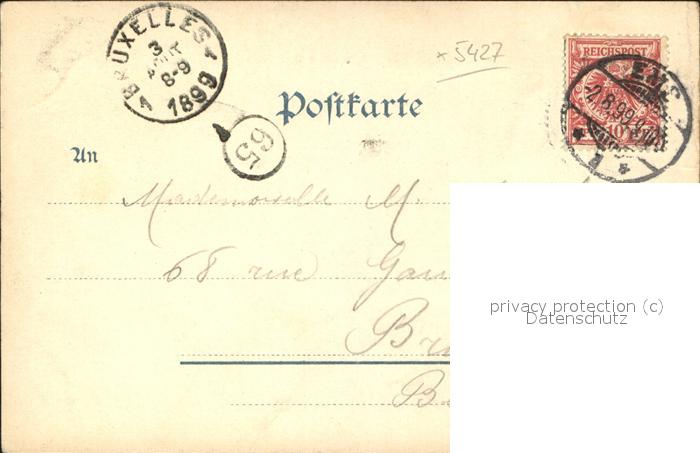 BRUXELLES
3
8-9
1 1899 1
× 5427
REICHSPOST
10
EMS
-2.8.99.
65
Postkarte
An
Mademoiselle M.
68 rue
privacy protection (c)
Datenschutz